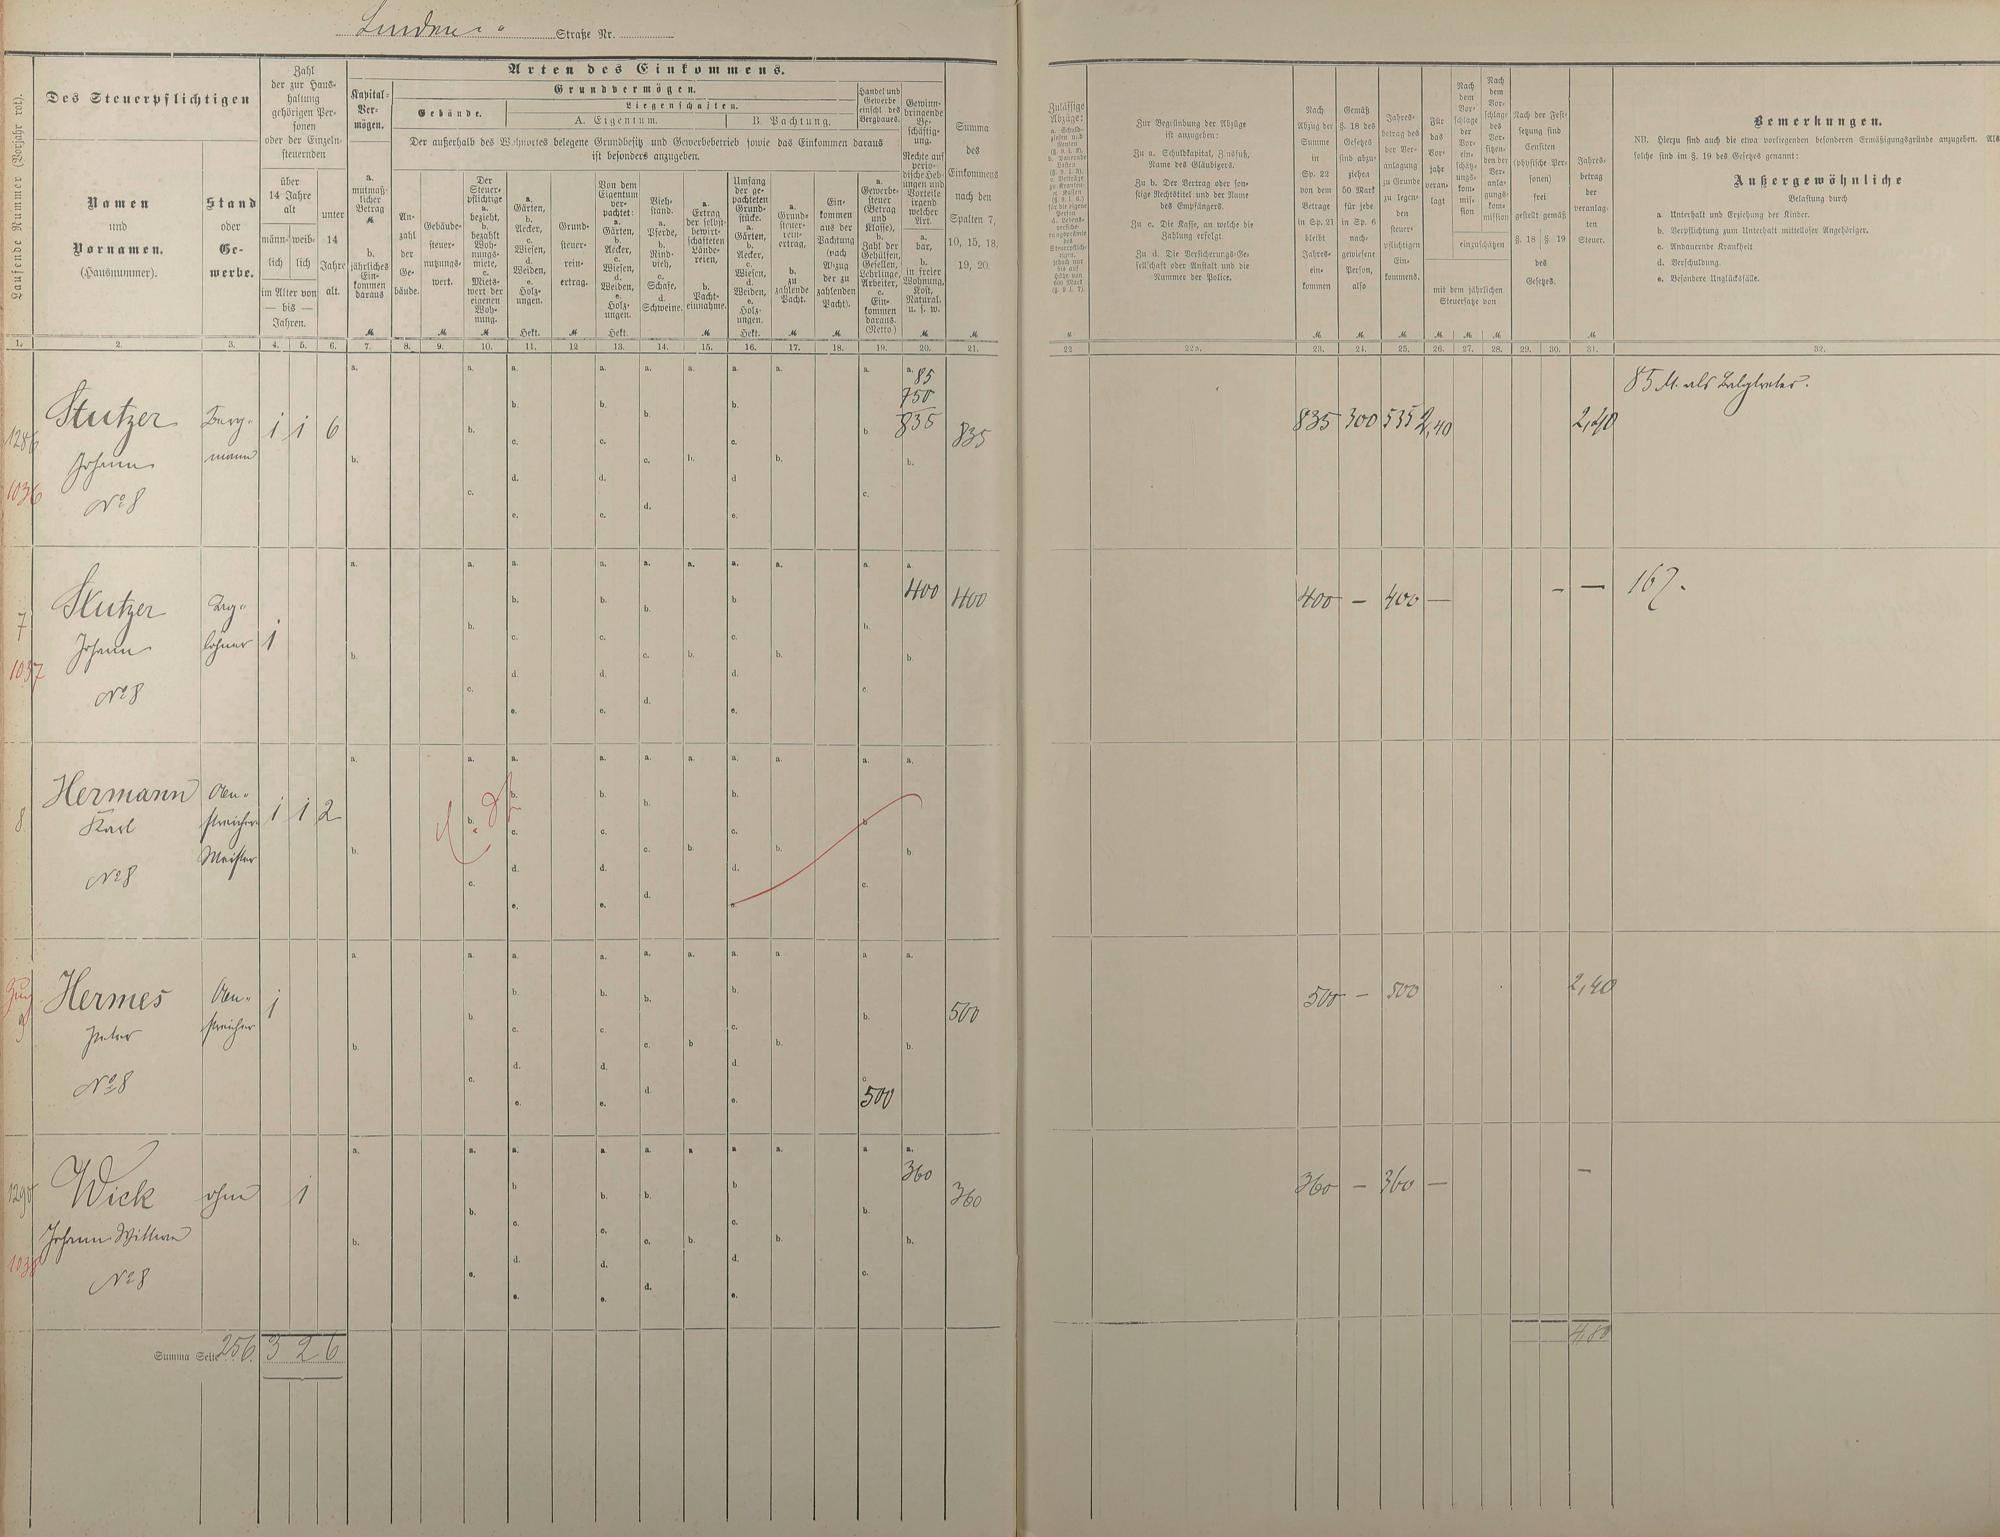 Linden Straße Nr.
Laufende Nummer (Vorjahr rot).
Des Steuerpflichtigen
Namen
und
Vornamen.
(Hausnummer).
Stand
oder
Ge-
werbe.
Zahl
der zur Haus-
haltung
gehörigen Per-
sonen
oder der Einzeln-
steuernden
über
14 Jahre
alt
männ-
lich
weib-
lich
unter
14
Jahre
alt.
im Alter von
— bis —
Jahren.
Arten des Einkommens.
Kapital-
Ver-
mögen.
a.
mutmaß-
licher
Betrag
M
b.
jährliches
Ein-
kommen
daraus
M
Grundvermögen.
Gebäude.
Liegenschaften.
A. Eigentum.
B. Pachtung.
Der außerhalb des Wohnortes belegene Grundbesitz und Gewerbebetrieb sowie das Einkommen daraus
ist besonders anzugeben.
An-
zahl
der
Ge-
bäude.
Gebäude-
steuer-
nutzungs-
wert.
M
Der
Steuer-
pflichtige
a.
bezieht,
b.
bezahlt
Woh-
nungs-
miete,
c.
Miets-
wert der
eigenen
Woh-
nung.
M
a.
Gärten,
b.
Aecker,
c.
Wiesen,
d.
Weiden,
e.
Holz-
ungen.
Hekt.
Grund-
steuer-
rein-
ertrag.
M
Von dem
Eigentum
ver-
pachtet:
a.
Gärten,
b.
Aecker,
c.
Wiesen,
d.
Weiden,
e.
Holz-
ungen.
Hekt.
Vieh-
stand.
a.
Pferde,
b.
Rind-
vieh,
c.
Schafe,
d.
Schweine.
a.
Ertrag
der selbst-
bewirt-
schafteten
Lände-
reien,
b.
Pacht-
einnahme.
M
Umfang
der ge-
pachteten
Grund-
stücke.
a.
Gärten,
b.
Aecker,
c.
Wiesen,
d.
Weiden,
e.
Holz-
ungen.
Hekt.
a.
Grund-
steuer-
rein-
ertrag,
b.
zu
zahlende
Pacht.
M
Ein-
kommen
aus der
Pachtung
(nach
Abzug
der zu
zahlenden
Pacht).
M
Handel und
Gewerbe
einschl. des
Bergbaues.
a.
Gewerbe-
steuer
(Betrag
und
Klasse),
b.
Zahl der
Gehilfen,
Gesellen,
Lehrlinge,
Arbeiter,
c.
Ein-
kommen
daraus.
(Netto)
M
Gewinn-
bringende
Be-
schäftig-
ung.
Rechte auf
perio-
dische Heb-
ungen und
Vorteile
irgend
welcher
Art.
a.
bar,
b.
in freier
Wohnung,
Kost,
Natural.
u. s. w.
M
Summa
des
Einkommens
nach den
Spalten 7,
10, 15, 18,
19, 20.
M
Zulässige
Abzüge:
a. Schuld-
zinsen und
Renten
(§. 9. I. 2).
M
Zur Begründung der Abzüge
ist anzugeben:
Zu a. Schuldkapital, Zinsfuß,
Name des Gläubigers.
Zu b. Der Vertrag oder son-
stige Rechtstitel und der Name
des Empfängers.
Zu c. Die Kasse, an welche die
Zahlung erfolgt.
Zu d. Die Versicherungs-Ge-
sellschaft oder Anstalt und die
Nummer der Police.
Nach
Abzug der
Summe
in
Sp. 22
von dem
Betrage
in Sp. 21
bleibt
Jahres-
ein-
kommen
M
Gemäß
§. 18 des
Gesetzes
sind abzu-
ziehen
50 Mark
für jede
in Sp. 6
nach-
gewiesene
Person,
also
M
Jahres-
betrag des
der Ver-
anlagung
zu Grunde
zu legen-
den
steuer-
pflichtigen
Ein-
kommens.
M
Für
das
Vor-
jahr
veran-
lagt
M
Nach
dem
Vor-
schlage
der
Vor-
ein-
schätz-
ungs-
kom-
mis-
sion
Nach
dem
Vor-
schlage
des
Vor-
sitzen-
den der
Ver-
anla-
gungs-
kom-
mission
einzuschätzen
mit dem jährlichen
Steuersatze von
M
M
Nach der Fest-
setzung sind
Censiten
(physische Per-
sonen)
frei
gestellt gemäß
§. 18
§. 19
des
Gesetzes.
Jahres-
betrag
der
veranlag-
ten
Steuer.
M
Bemerkungen.
NB. Hierzu sind auch die etwa vorliegenden besonderen Ermäßigungsgründe anzugeben. Als
solche sind im §. 19 des Gesetzes genannt:
Außergewöhnliche
Belastung durch
a. Unterhalt und Erziehung der Kinder.
b. Verpflichtung zum Unterhalt mittelloser Angehöriger.
c. Andauernde Krankheit
d. Verschuldung.
e. Besondere Unglücksfälle.
1. 2. 3. 4. 5. 6. 7. 8. 9. 10. 11. 12 13. 14. 15. 16. 17. 18. 19. 20. 21. 22 22a. 23. 24. 25. 26. 27. 28. 29. 30. 31. 32.
1286
1036
Stutzer
Johann
No 8
Berg-
mann
1 1 6
85
750
835
835
835 300 535 2,40 2,40
85 M. als
7
1037
Stutzer
Johann
No 8
Tag-
löhner
1
400 400
400 — 400 — — —
167.
8
Hermann
Karl
No 8
An-
streicher
Meister
1 1 2
Zug
9
Hermes
Peter
No 8
An-
streicher
1
500
500
500 — 500 2,40
1290
1038
Wick
Johann Wittwe
No 8
ohne
1
360
360
360 — 360 — —
Summa Seite 256. 3 2 6
4,80